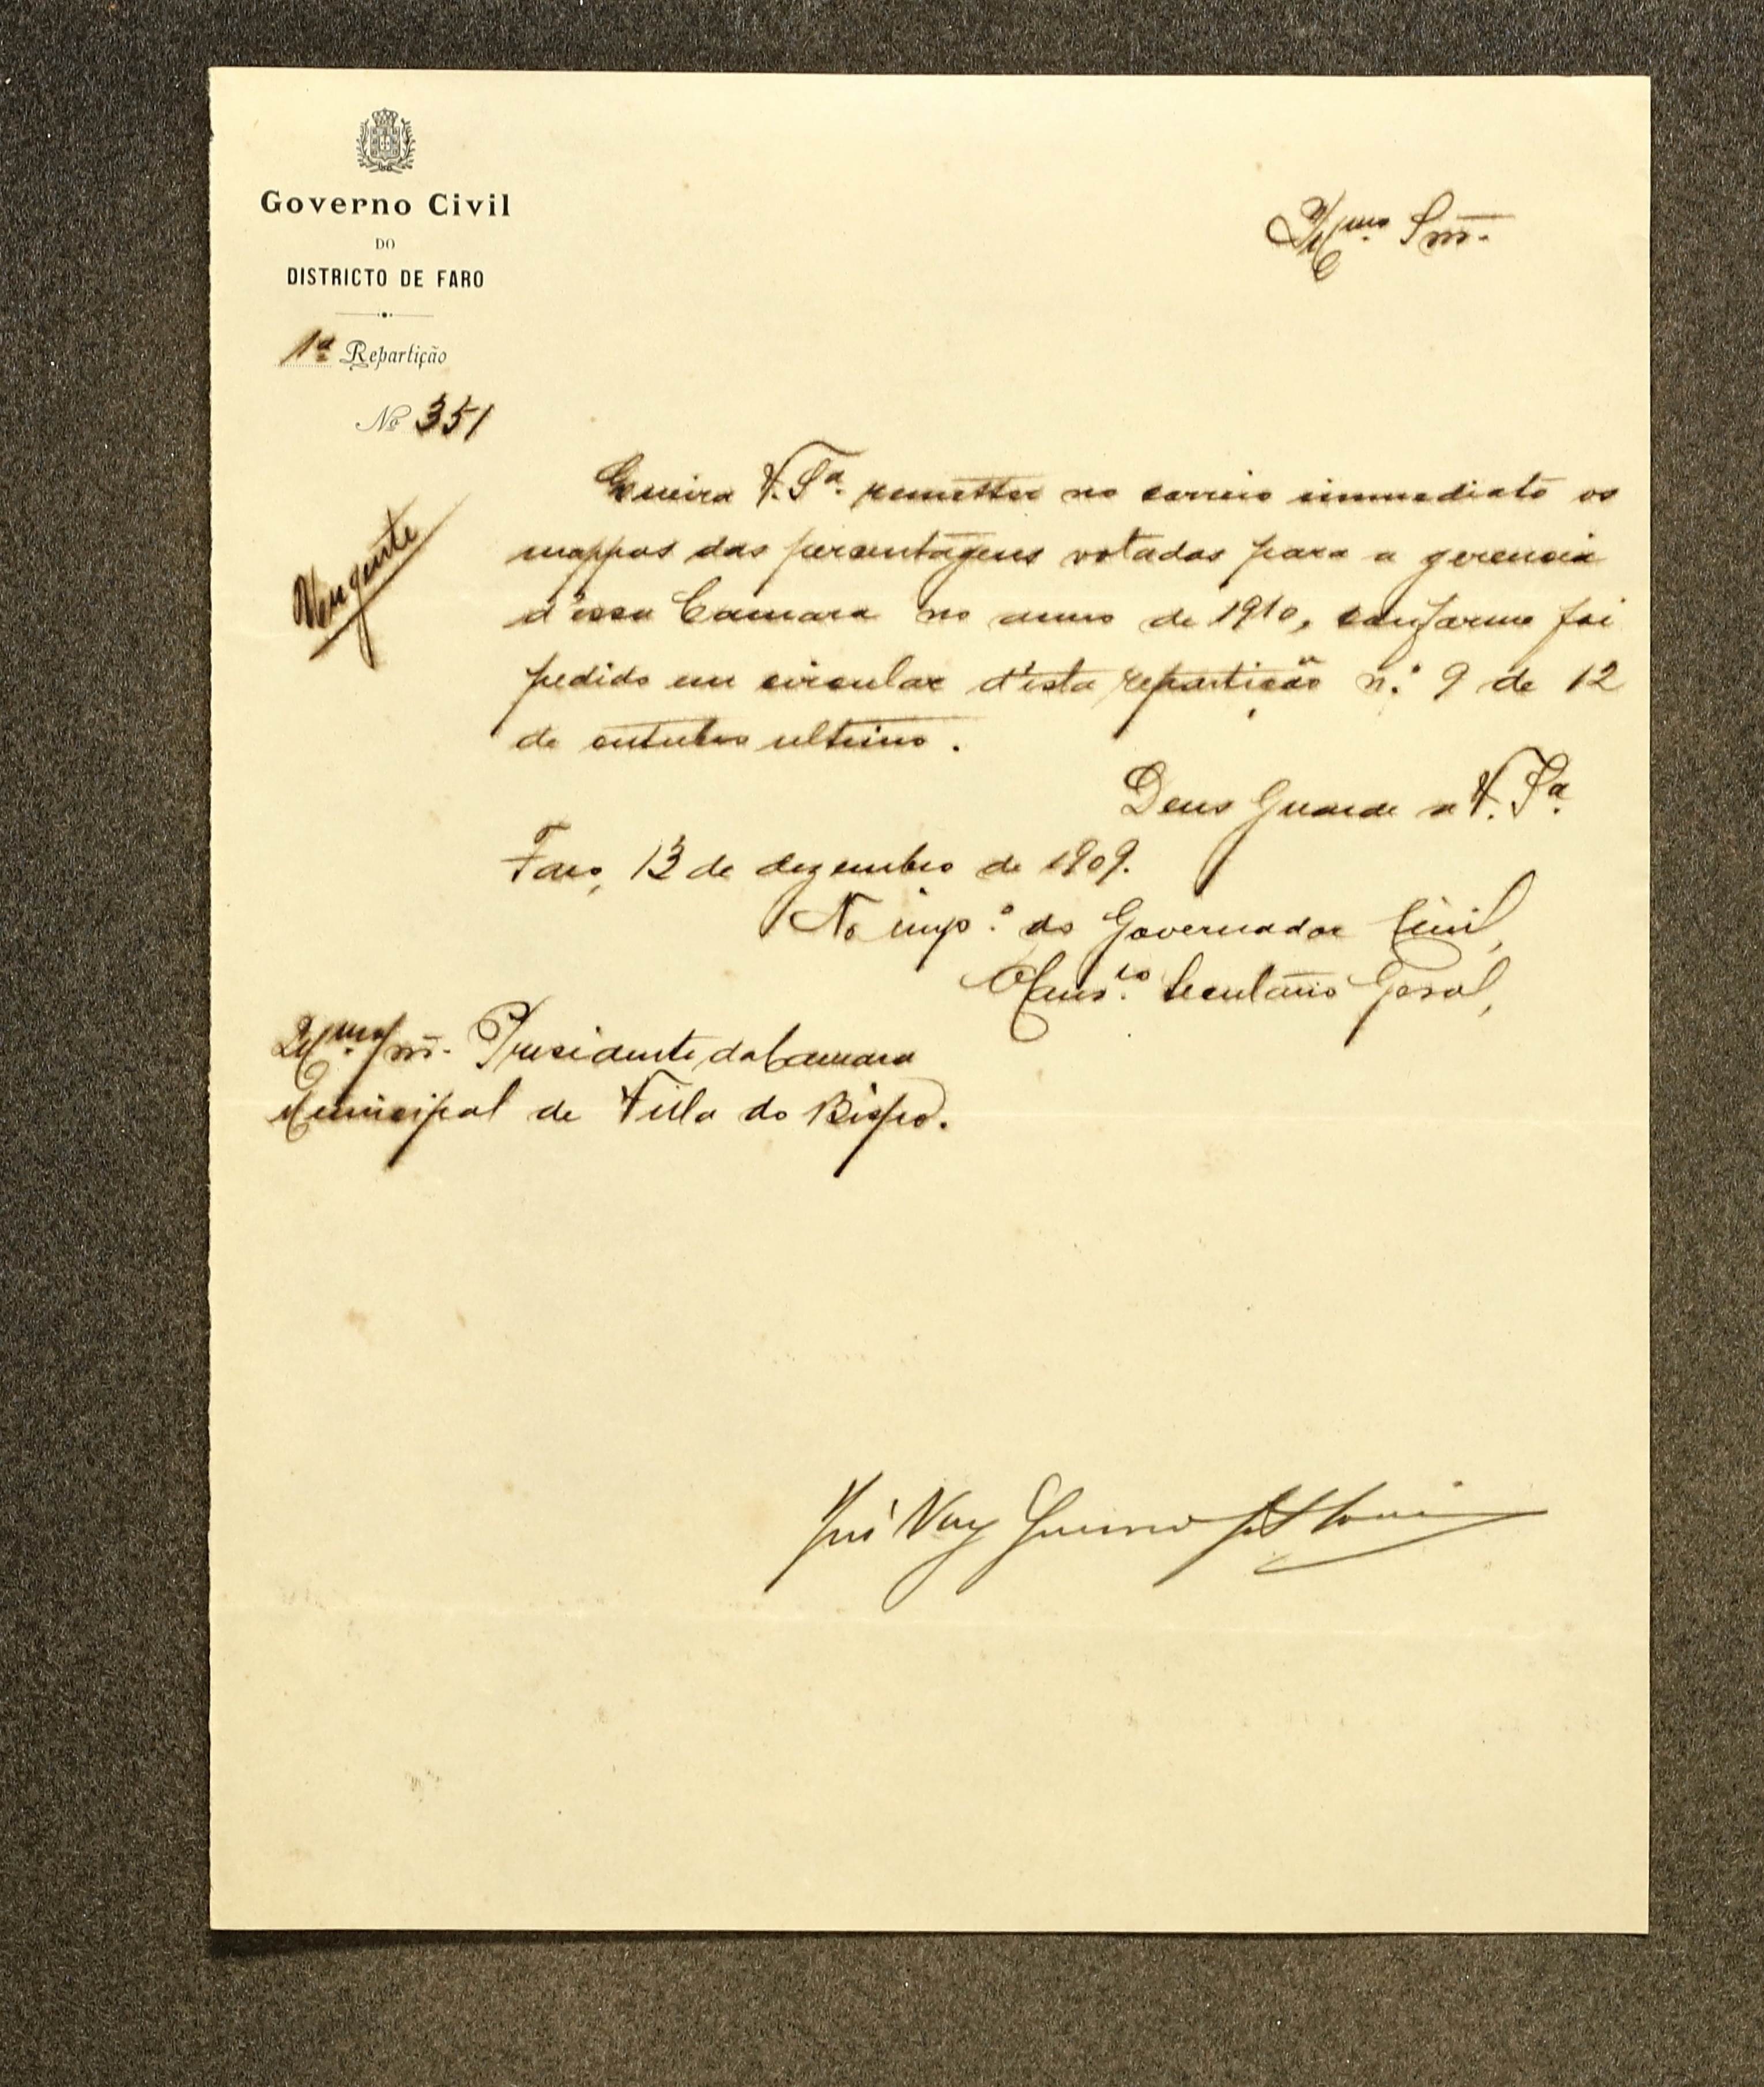 Governo Civil
DO
DISTRICTO DE FARO
1ª Repartição
Nº 351
Illmo Snr.
Urgente
Queira V. Sª. remetter no correio immediato os
mappas das percentagens votadas para a gerencia
d'essa Camara no anno de 1910, conforme foi
pedido em circular d'esta repartição n.º 9 de 12
de outubro ultimo.
Deus Guarde a V. Sª.
Faro, 13 de dezembro de 1909.
No imp.º do Governador Civil,
Secretario Geral,
Illmo Snr. Presidente da Camara
Municipal de Villa do Bispo.
José Vaz Guerreiro